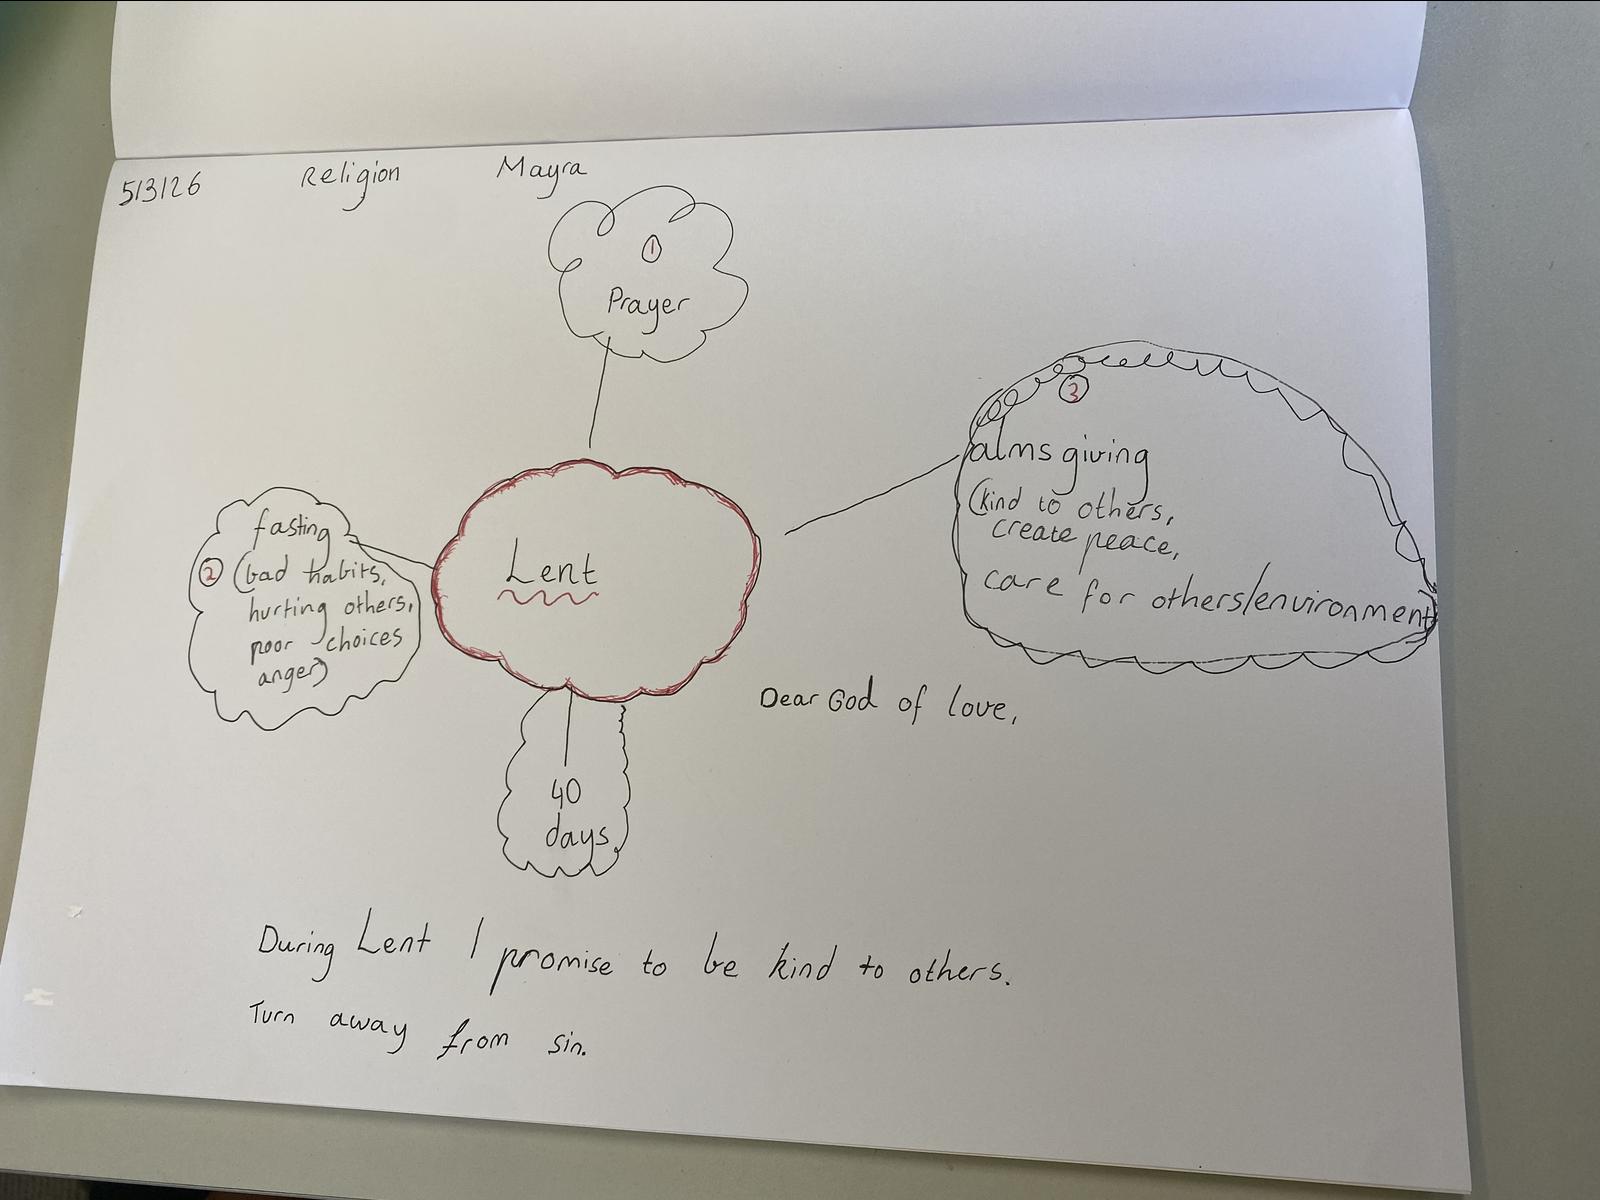 5/3/26 Religion Mayra
1
Prayer
3
alms giving
(kind to others,
create peace,
care for others/environment
fasting
2 (bad habits,
hurting others,
poor choices
anger)
Lent
Dear God of love,
40
days
During Lent I promise to be kind to others.
Turn away from sin.